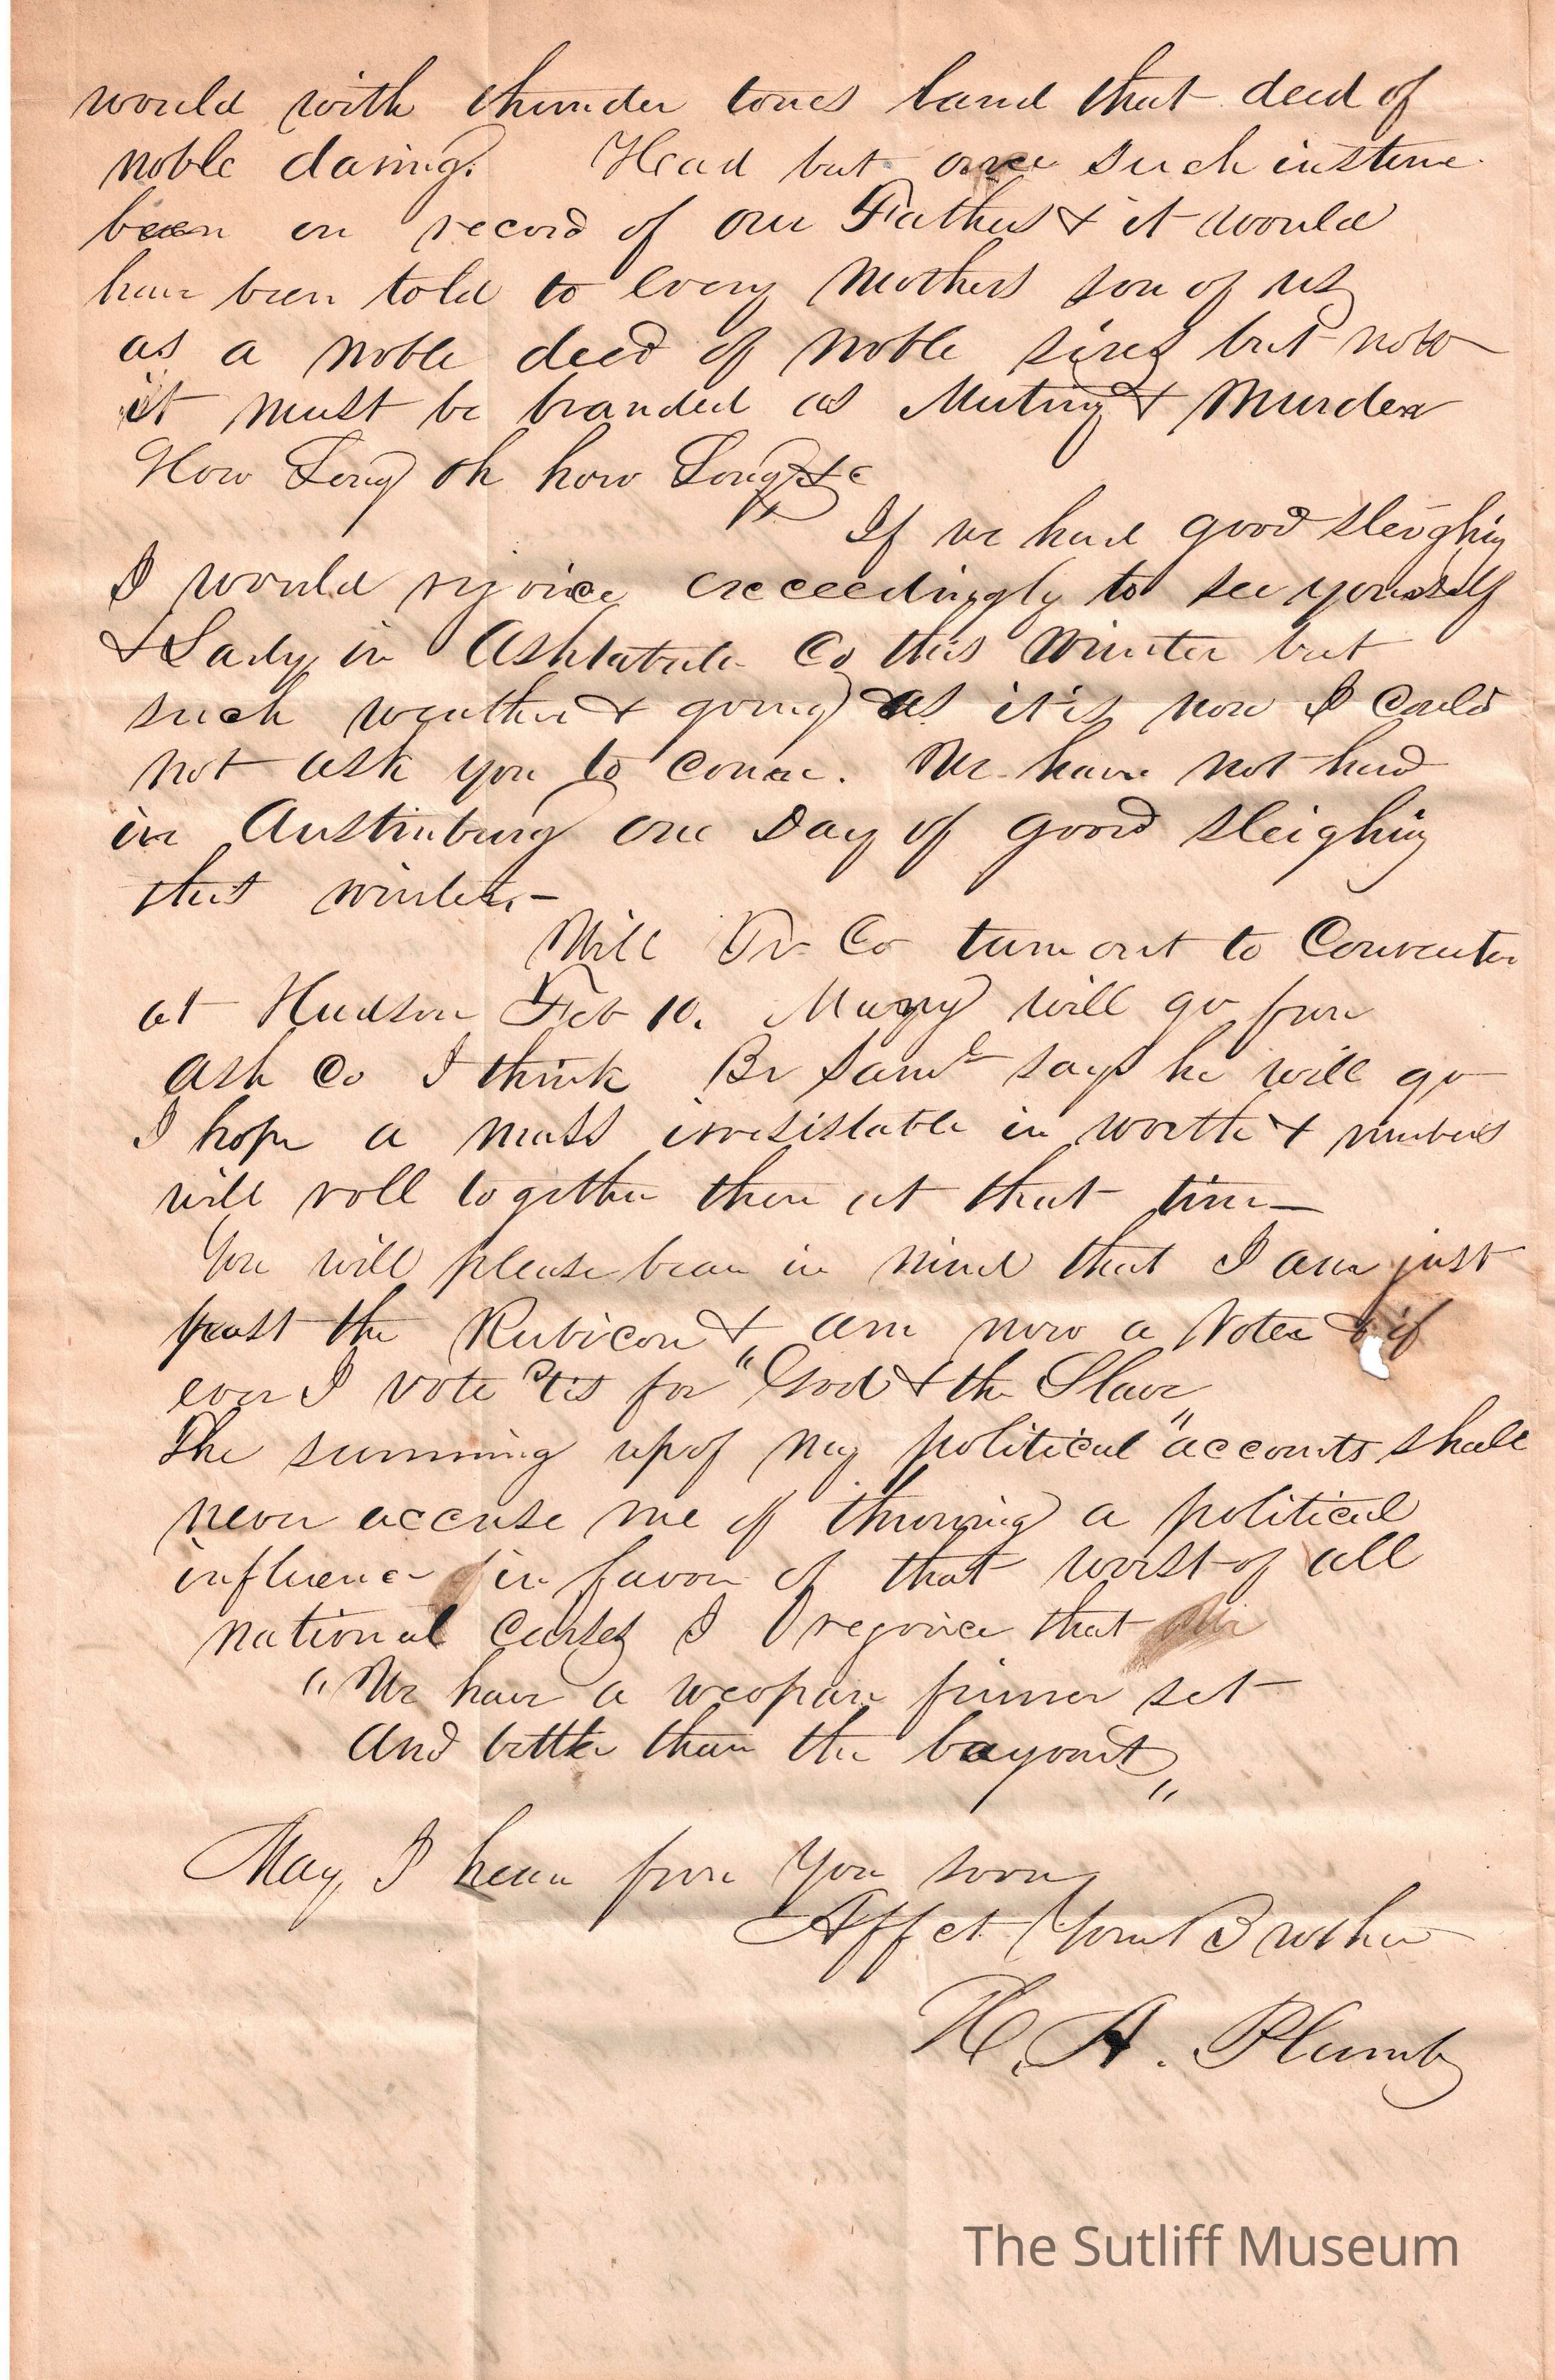 would with thunder tones laud that deed of
noble daring. Had but once such instance
been on record of our Fathers & it would
have been told to every Mothers son of us
as a noble deed of noble sires but now
it must be branded as Mutiny & Murder
How Long oh how Long &c
If we had good sleighing
I would rejoice exceedingly to see yourself
& Lady in Ashtabula Co this Winter but
such weather & going as it is now I Could
not ask you to Come. We have not had
in Austinburg one Day of good sleighing
this winter.—
Will Tr Co turn out to Convention
at Hudson Feb 10. Many will go from
Ash Co I think Br Saml says he will go
I hope a mass irresistable in worth & numbers
will roll together there at that time—
You will please bear in mind that I am just
past the Rubicon & am now a Voter & if
ever I vote 'tis for "God & the Slave"
The summing up of my political accounts shall
never accuse me of throwing a political
influence in favor of that worst of all
national Curses I rejoice that
"We have a weopan firmer set
And better than the bayonet"
May I hear from You soon
Affct Your Brother
H. A. Plumb
The Sutliff Museum